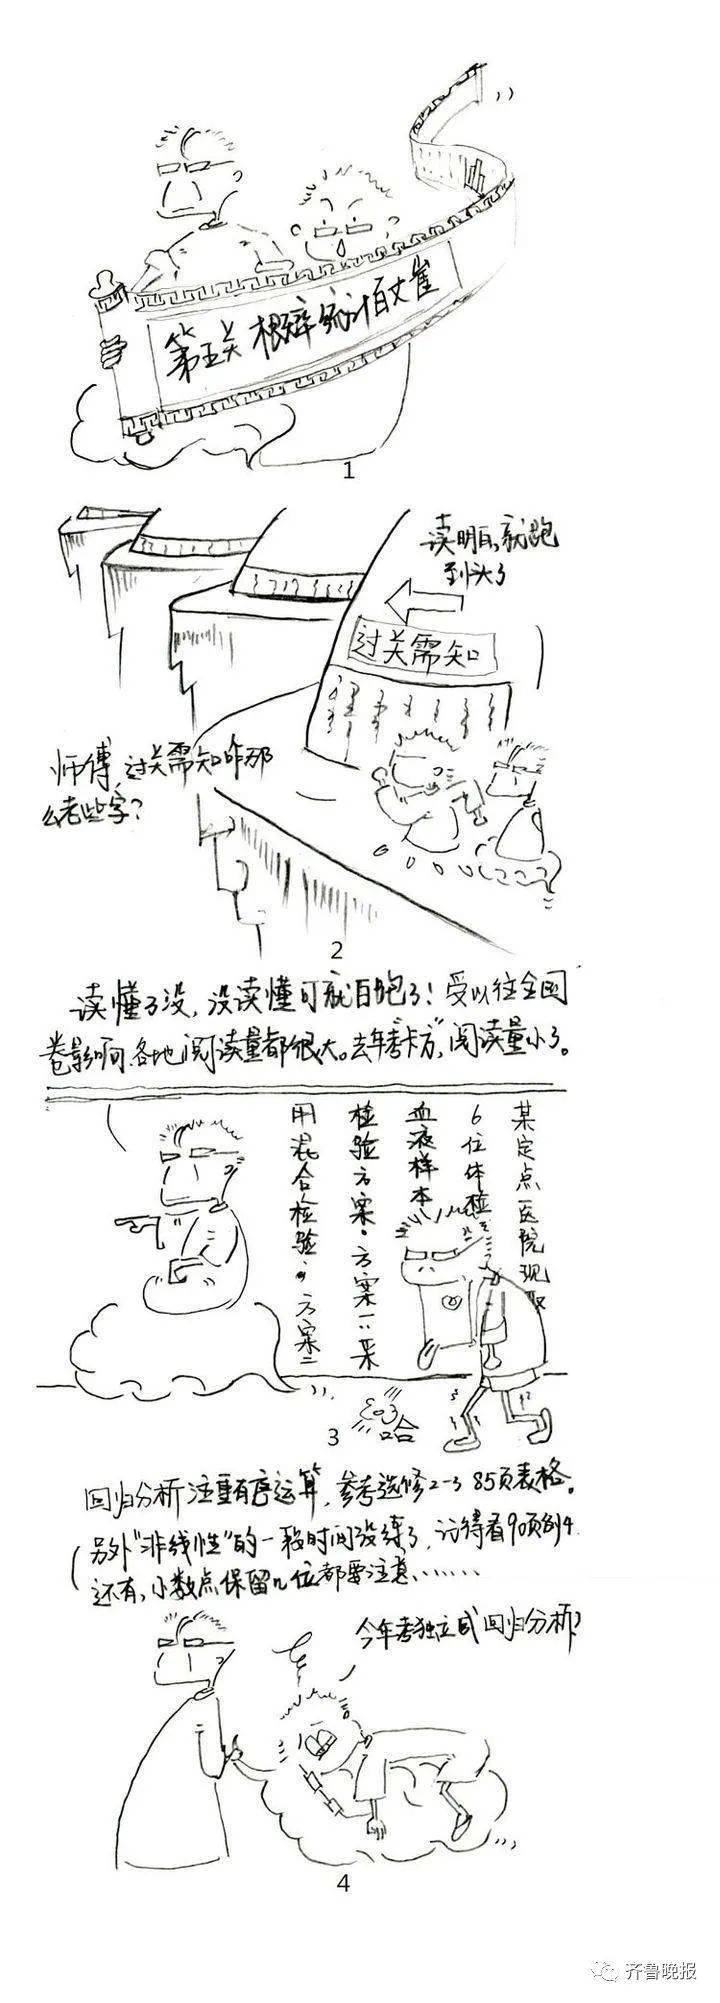 第五关 概率统计百丈崖
1
读明白,就跑
到头了
过关需知
师傅,过关需知咋那
么老些字?
2
读懂了没,没读懂可就白跑了!受以往全国
卷影响,各地阅读量都很大。去年考"卡方",阅读量小了。
某定点医院现取
6位体检
血液样本
检验方案。方案一:采
用混合检验;方案二
哈
3
回归分析注重有序运算,参考选修2-3 85页表格。
另外"非线性"的一段时间没练了,记得看90页例4.
还有,小数点保留几位都要注意……
今年考独立或回归分析?
4
齐鲁晚报